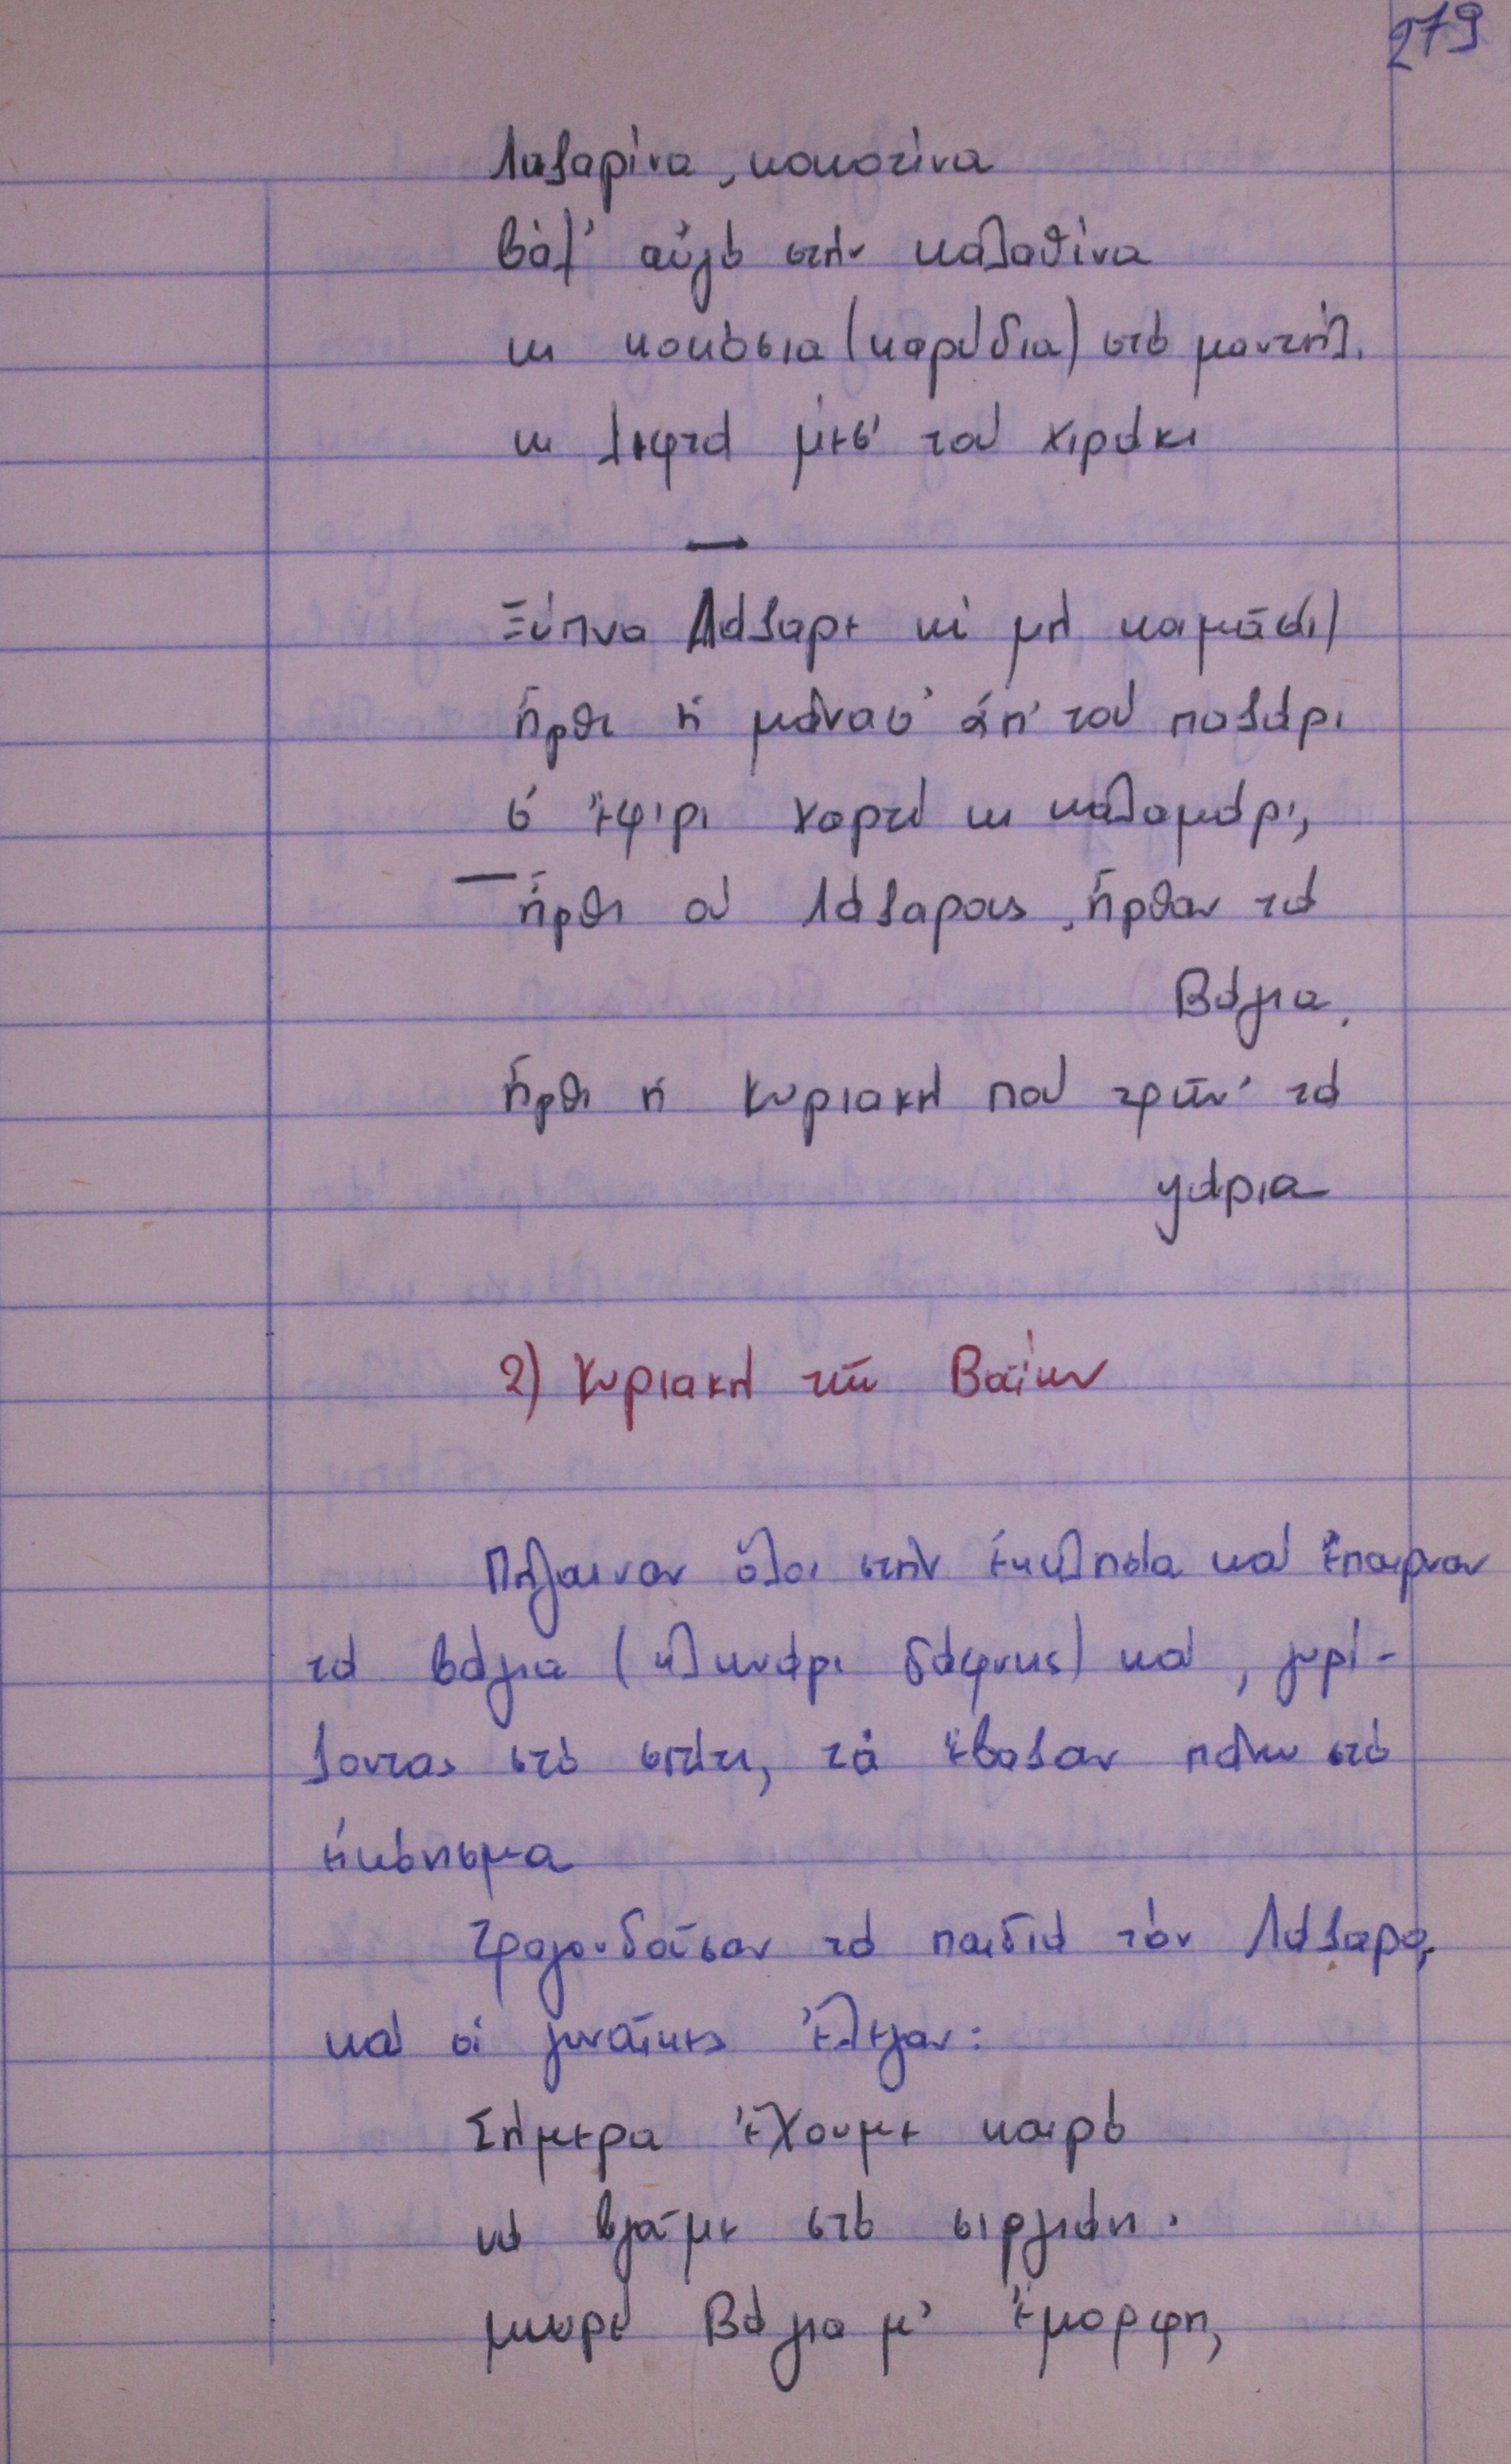 279
Λαζαρίνα, κοκοτίνα
βάλ' αὐγό στήν καλαθίνα
κι κουκόσια (καρύδια) στό μαντήλ.
κι λεφτά μέσ' τού χιράκι
—
Ξύπνα Λάζαρε κί μή κοιμᾶσι)
ἦρθι ἡ μάνασ' ἀπ' τού παζάρι
σ' ἔφιρι χαρτί κι καλαμάρι,
— ἦρθι οὑ Λάζαρους, ἦρθαν τά
Βάγια.
ἦρθι ἡ Κυριακή πού τρῶν' τά
ψάρια
2) Κυριακή τῶν Βαΐων
Πήγαιναν ὅλοι στήν ἐκκλησία καί ἔπαιρναν
τά βάγια (κλωνάρι δάφνης) καί, γυρί-
ζοντας στό σπίτι, τά ἔβαζαν πάνω στό
εἰκόνισμα
Τραγουδοῦσαν τά παιδιά τόν Λάζαρο,
καί οἱ γυναῖκες ἔλεγαν:
Σήμερα ἔχουμε καιρό
νά βγαῖμε στό σιργιάνι.
μωρέ Βάγια μ' ἔμορφη,